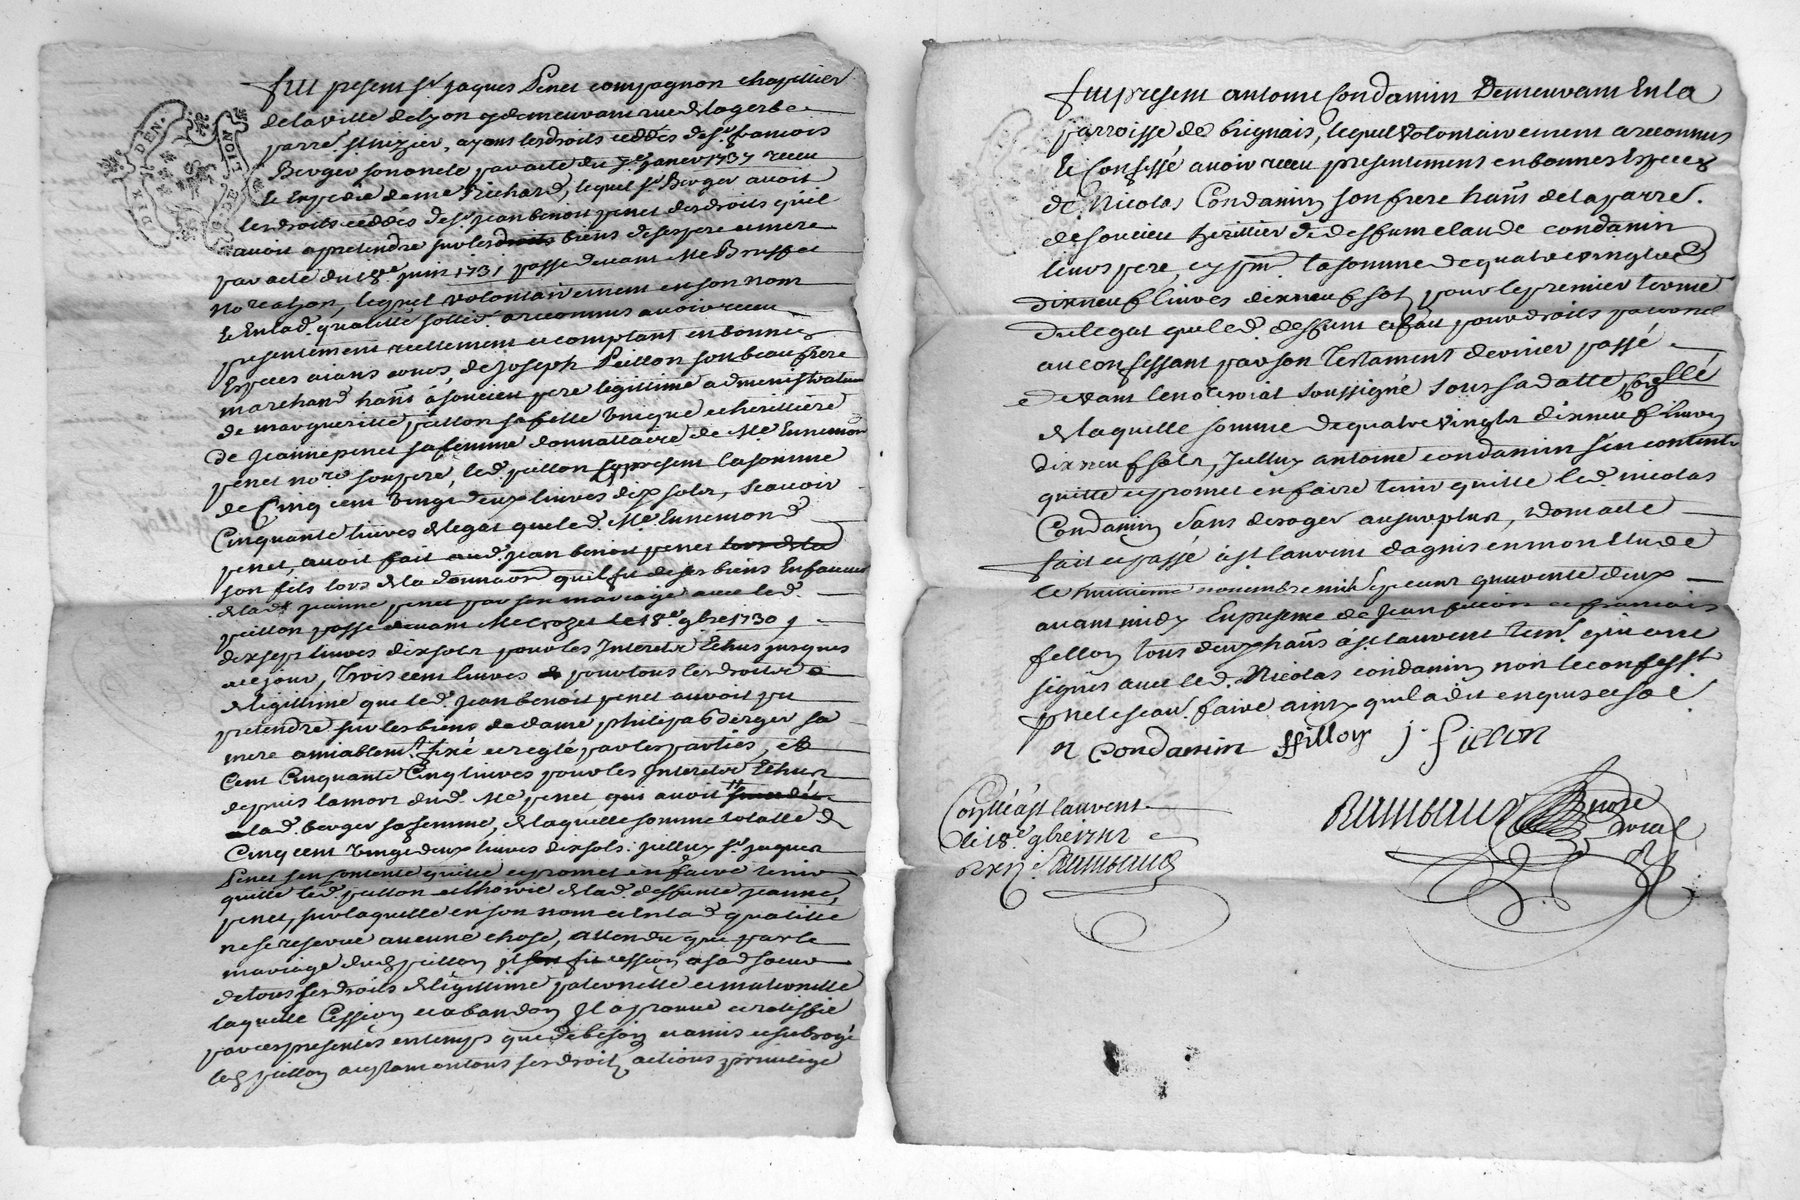 DIX DEN.
G. DE LION
fut present Sr jaques Penet compagnon chapellier
de la ville de Lyon y demeurant rue de la gerbe
parre. St nizier, ayant les droits ceddés de Sr francois
Berger son oncle par acte du janer 1737 receu
et expedié de me Richard, lequel Sr Berger avoit
les droits ceddes de Sr jean benoit penet des droits qu'il
avoit a pretendre sur les droits biens de ses pere et mere
par acte du juin 1731 passe devant Me Brossat
no're a lyon, lequel volontairement en son nom
et en lad. qualitté a reconnus avoir receu
presentement reellement et comptant en bonnes
Especes aians cours, de joseph Peillon son beau frere
marchand hant. à soucieu pere legitime administrateur
de margueritte peillon sa fille unique et herittiere
de jeanne penet sa femme donnattaire de Me Ennemond
penet no're son pere, led. peillon present la somme
de Cinq cent vingt deux livres dix sols, scavoir
Cinquante livres de legat que led. Me Ennemond
penet, avoit fait aud. jean benoit penet lors de la
son fils lors de la donnaon qu'il fit de ses biens En faveur
de lad. jeanne penet par son mariage avec led.
peillon passé devant Me Crozet le 18e 9bre 1730,
dix sept livres dix sols pour les Interets Echus jusques
a ce jour, Trois cent livres pour tous les droits
de legitime que led. jean benoit penet auroit pu
pretendre sur les biens de dame philipa berger sa
mere amiablemt. fixé et reglé par les parties, et
Cent Cinquante Cinq livres pour les Interets Echus
depuis la mort dud. Me penet qui avoit
lad. berger sa femme, de laquelle somme totalle de
Cinq cent vingt deux livres dix sols ledit Sr jaques
Penet s'en contente quitte et promet en faire tenir
quitte led. peillon et l'hoirie de lad. deffunte jeanne
penet, sur laquelle en son nom et en lad. qualitté
ne se reserve aucune chose, attendu que par le
mariage dud. peillon il fit cession a sad. soeur
de tous ses droits de legittime paternelle et maternelle
laquelle Cession et abandon Il aprouve et ratiffie
par ces presentes en temps que de besoin et a mis et subrogé
led. peillon a en tous ses droits, actions privilege
fut present antoine Condamin Demeurant En la
parroisse de brignais, lequel volontairement a reconnus
Et Confessé avoir receu presentement en bonnes Especes
de Nicolas Condamin son frere hant. de la parre.
de soucieu heritier de deffunt claude condamin
leurs pere, cy pnt. la somme de quatre vingts
dix neuf livres dix neuf sols pour le premier terme
du legat que led. deffunt a fait pour droits paternel
au confessant par son Testament dernier passé
devant le notaire soussigné sous sa datte
de laquelle somme de quatre vingts dix neuf livres
dix neuf sols, antoine condamin s'en contente
quitte et promet en faire tenir quitte led. nicolas
Condamin sans deroger au surplus, dont acte
fait et passé à st laurent dagnis en mon etude
le huitieme novembre mil sept cent quarente deux
avant midy En presence de jean et francois
fellon tous deux hants. à st laurent tem. qui ont
signés avec led. Nicolas condamin non le confesst.
pour ne le scavr. faire ainsi qu'il a dit enquis et so é.
n Condamin ffillon j. fillon
Raimbaud no're
royal
Conllé à st laurent
le 18e 9bre 1742
Raimbaud